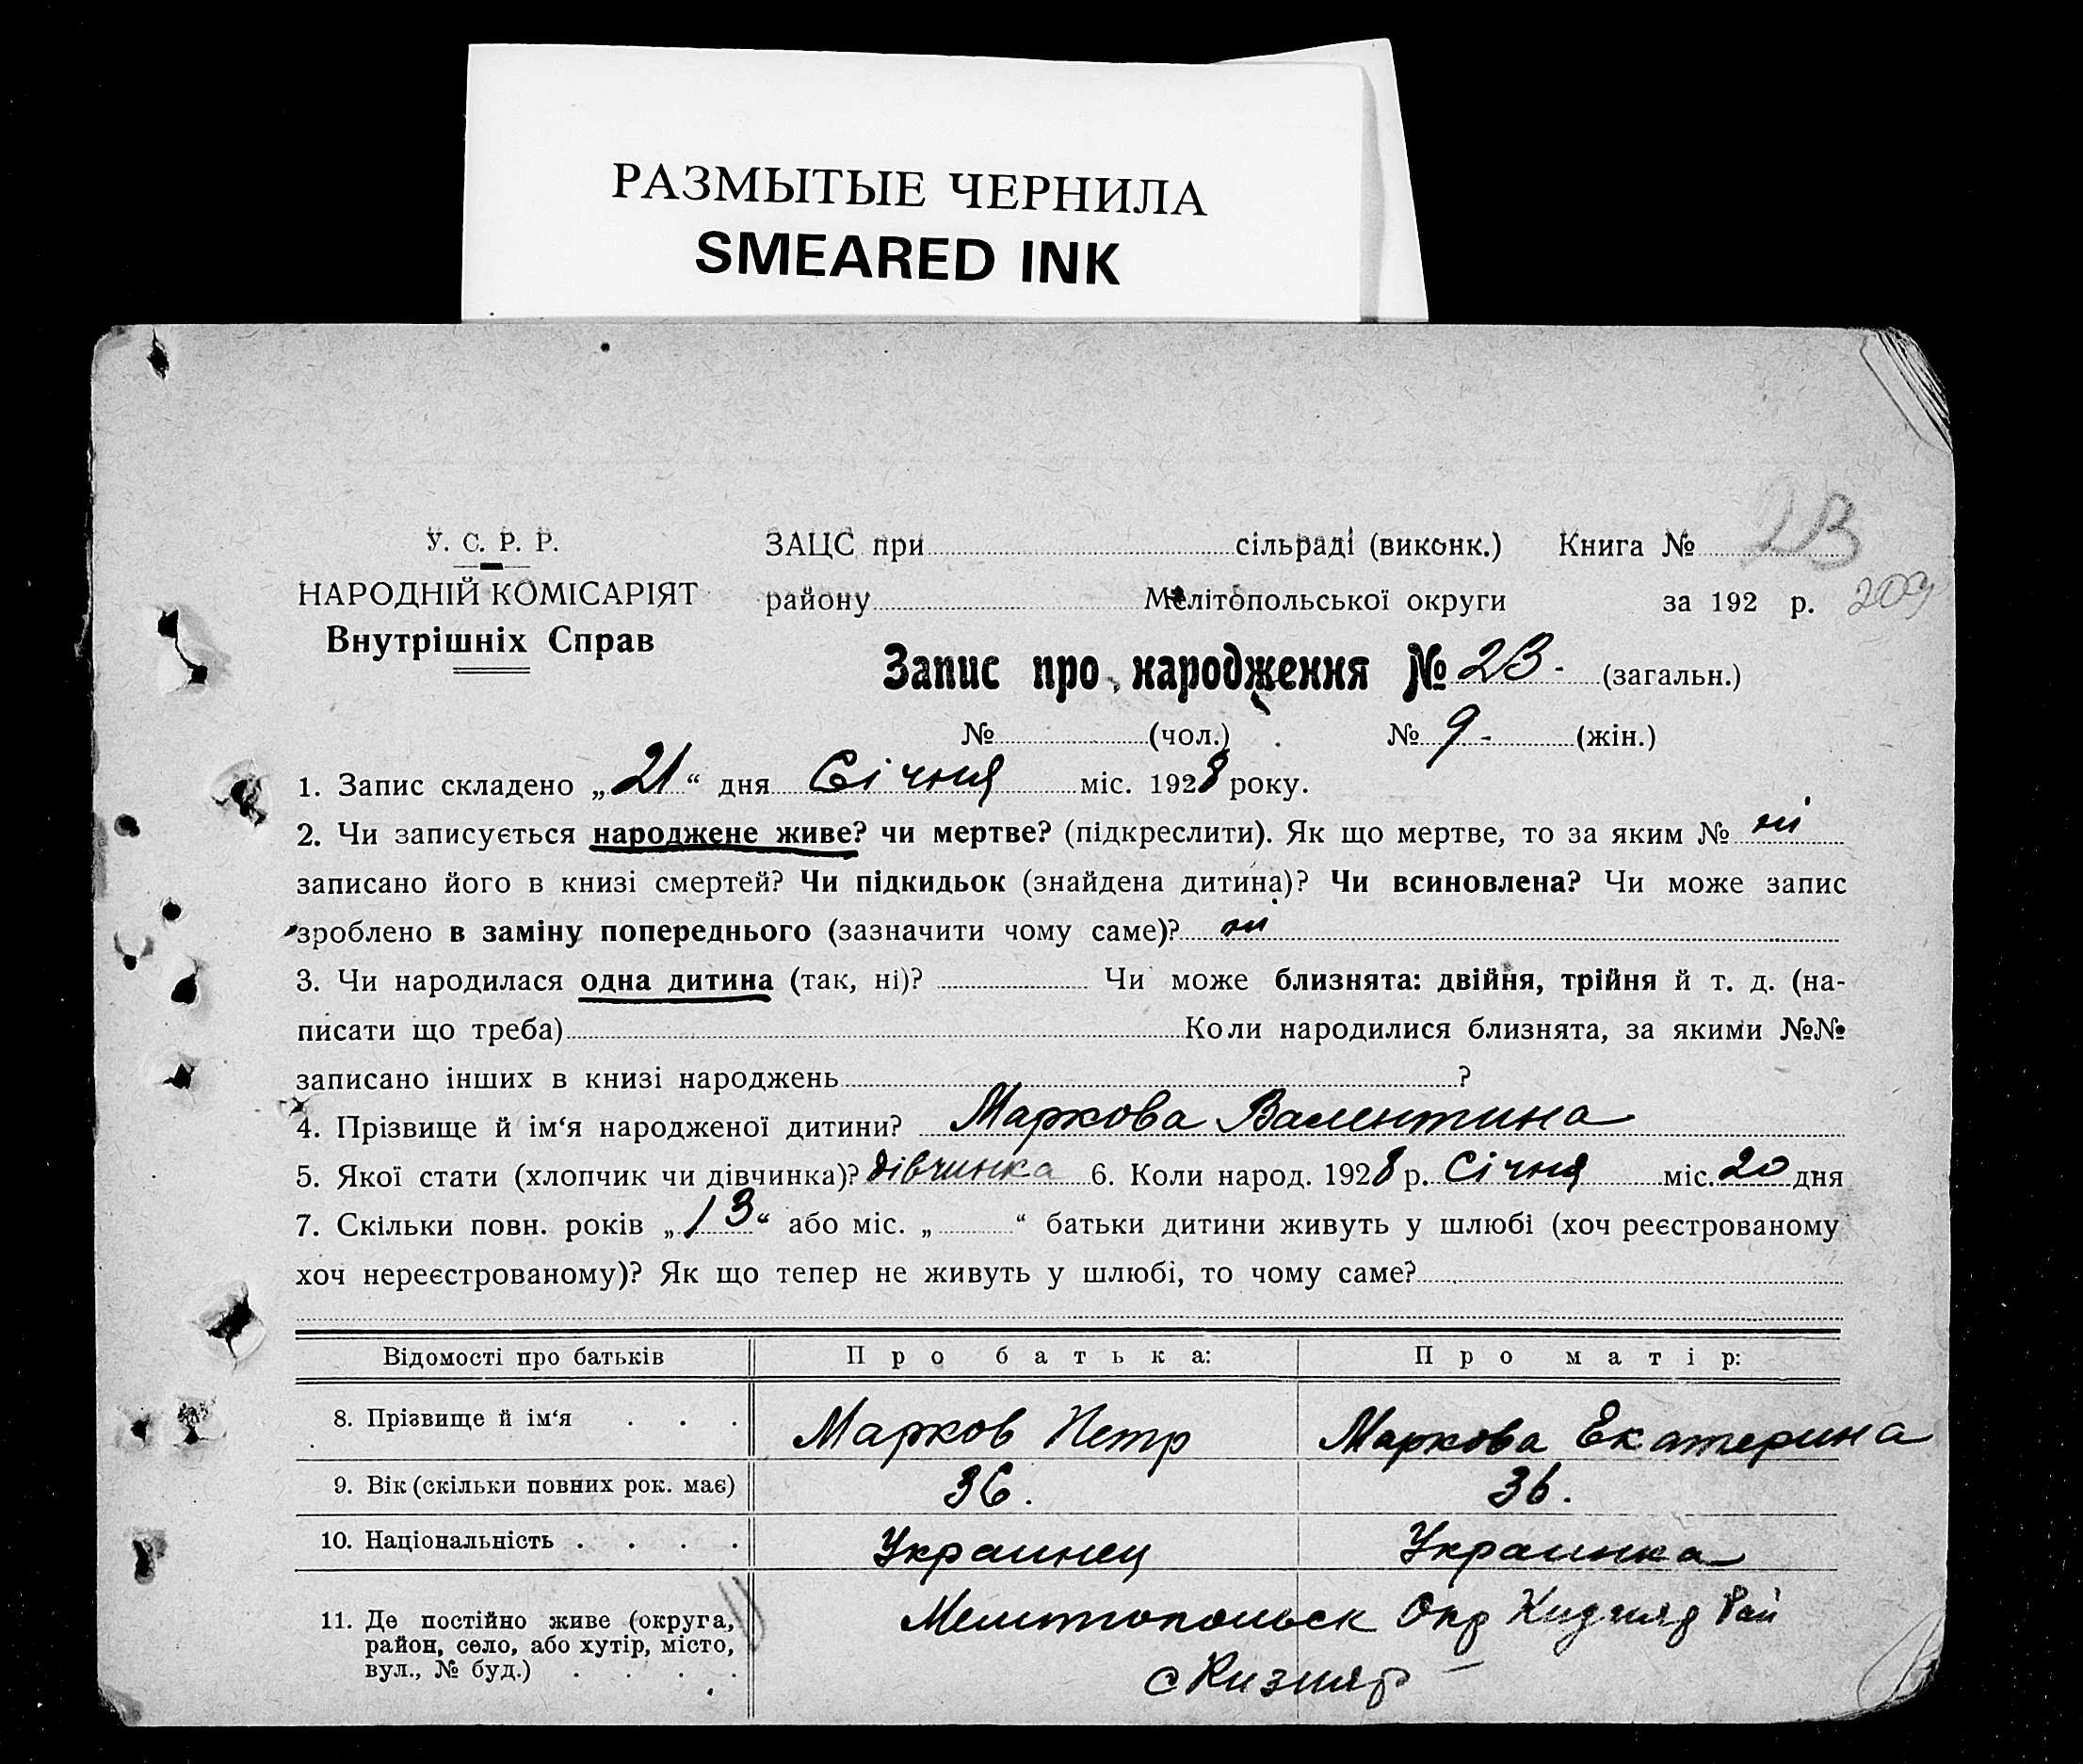 РАЗМЫТЫЕ ЧЕРНИЛА
SMEARED INK
У. С. Р. Р.
НАРОДНІЙ КОМІСАРІЯТ
Внутрішніх Справ
ЗАЦС при сільраді (виконк.) Книга № 23
району Мелітопольської округи за 192 р. 209
Запис про народження № 23 - (загальн.)
№ (чол.) № 9 - (жін.)
1. Запис складено „21“ дня Січня міс. 1928 року.
2. Чи записується народжене живе? чи мертве? (підкреслити). Як що мертве, то за яким № ні
записано його в книзі смертей? Чи підкидьок (знайдена дитина)? Чи всиновлена? Чи може запис
зроблено в заміну попереднього (зазначити чому саме)? ні
3. Чи народилася одна дитина (так, ні)? Чи може близнята: двійня, трійня й т. д. (на-
писати що треба) Коли народилися близнята, за якими №№
записано інших в книзі народжень ?
4. Прізвище й ім‘я народженої дитини? Маркова Валентина
5. Якої стати (хлопчик чи дівчинка)? дівчинка 6. Коли народ. 1928 р. Січня міс. 20 дня
7. Скільки повн. років „13“ або міс. „ “ батьки дитини живуть у шлюбі (хоч реєстрованому
хоч нереєстрованому)? Як що тепер не живуть у шлюбі, то чому саме?
Відомості про батьків Про батька: Про матір:
8. Прізвище й ім‘я . . . Марков Петр Маркова Екатерина
9. Вік (скільки повних рок. має) 36. 36.
10. Національність . . . . Украинец Украинка
11. Де постійно живе (округа,
район, село, або хутір, місто,
вул., № буд.) . . . .
Мелитопольск Окр Рай
с Кизияр